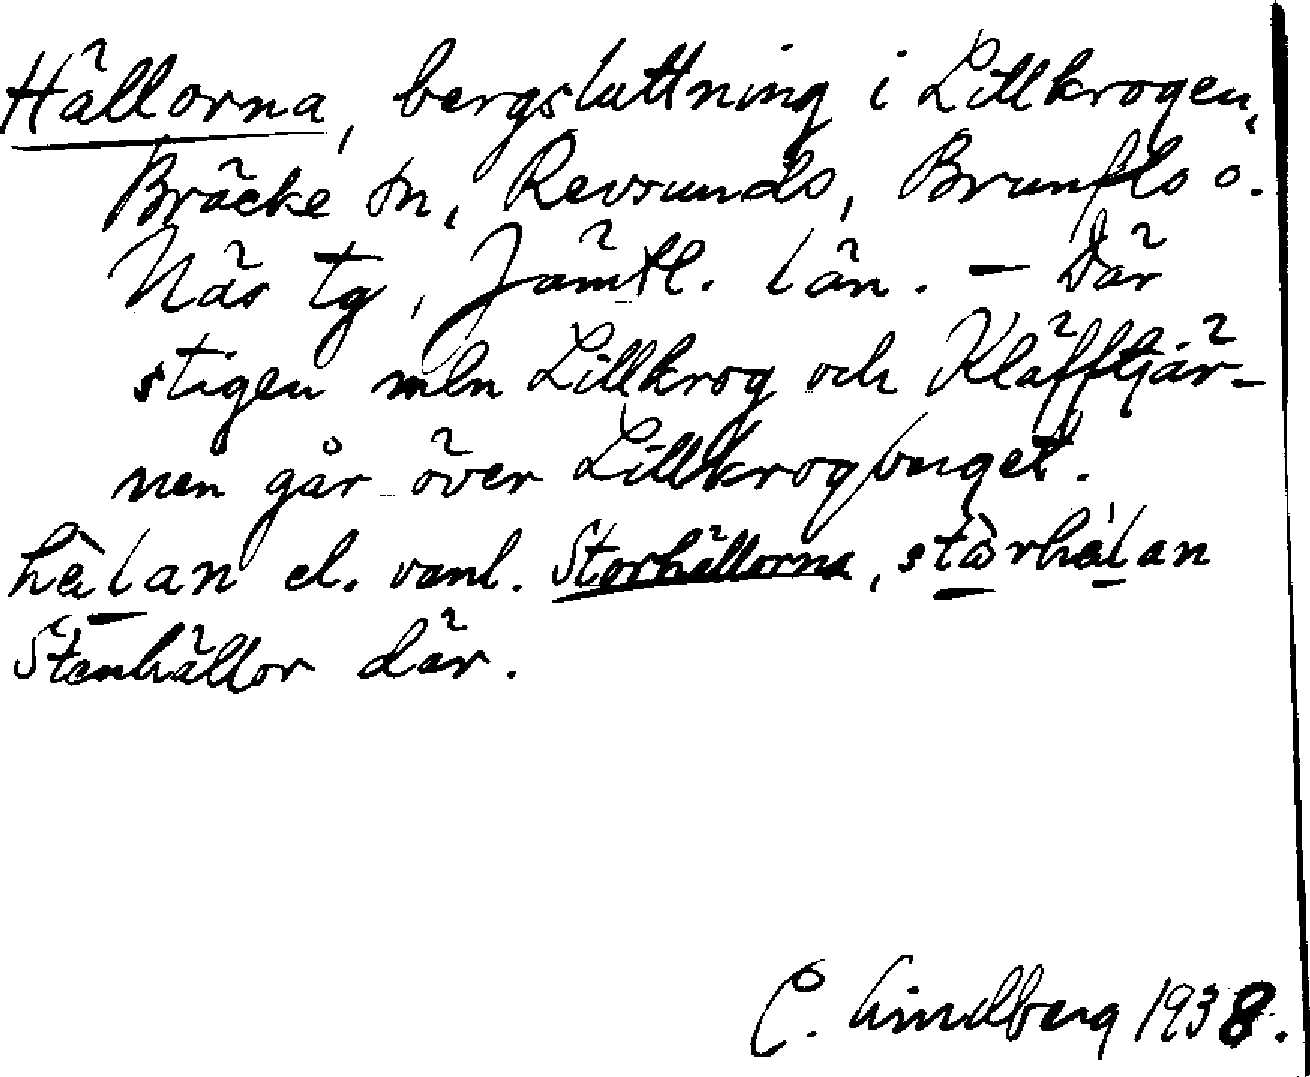 Hällorna, bergsluttning i Lillkrogen,
Bräcke sn, Revsunds, Brunflo o.
Näs tg, Jämtl. län. – Där
stigen mln Lillkrog och Kläfftjär-
nen går över Lillkrogberget.
hę̀lan el. vanl. Storhällorna, stòrhę́lan
Stenhällor där.
C. Lindberg 1938.